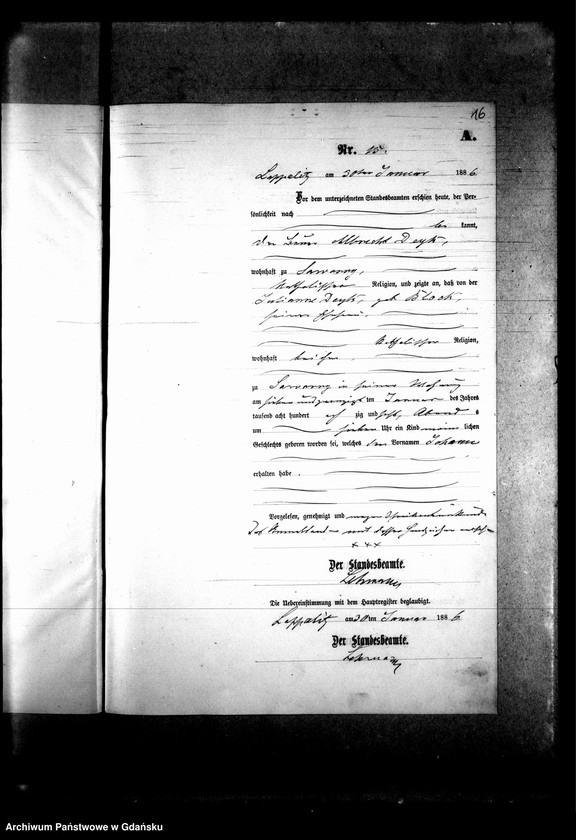 16
A.
Nr. 15.
am 30ten Januar 1886
Vor dem unterzeichneten Standesbeamten erschien heute, der Per-
sönlichkeit nach
be kannt,
der Albrecht Deyk,
wohnhaft zu
katholischer Religion, und zeigte an, daß von der
Julianne Deyk, geb. Block,
seiner Ehefrau
katholischer Religion,
wohnhaft bei ihm
zu in seiner Wohnung
am sieben und zwanzigsten Januar des Jahres
tausend acht hundert acht zig und sechs, Abend s
um sieben Uhr ein Kind männ lichen
Geschlechts geboren worden sei, welches den Vornamen Johann
erhalten habe.
Vorgelesen, genehmigt und wegen Schreibensunkunde
des mit dessen Handzeichen versehen
+ + +
Der Standesbeamte.
Lehmann
Die Uebereinstimmung mit dem Hauptregister beglaubigt.
am 30ten Januar 1886
Der Standesbeamte.
Lehmann
Archiwum Państwowe w Gdańsku